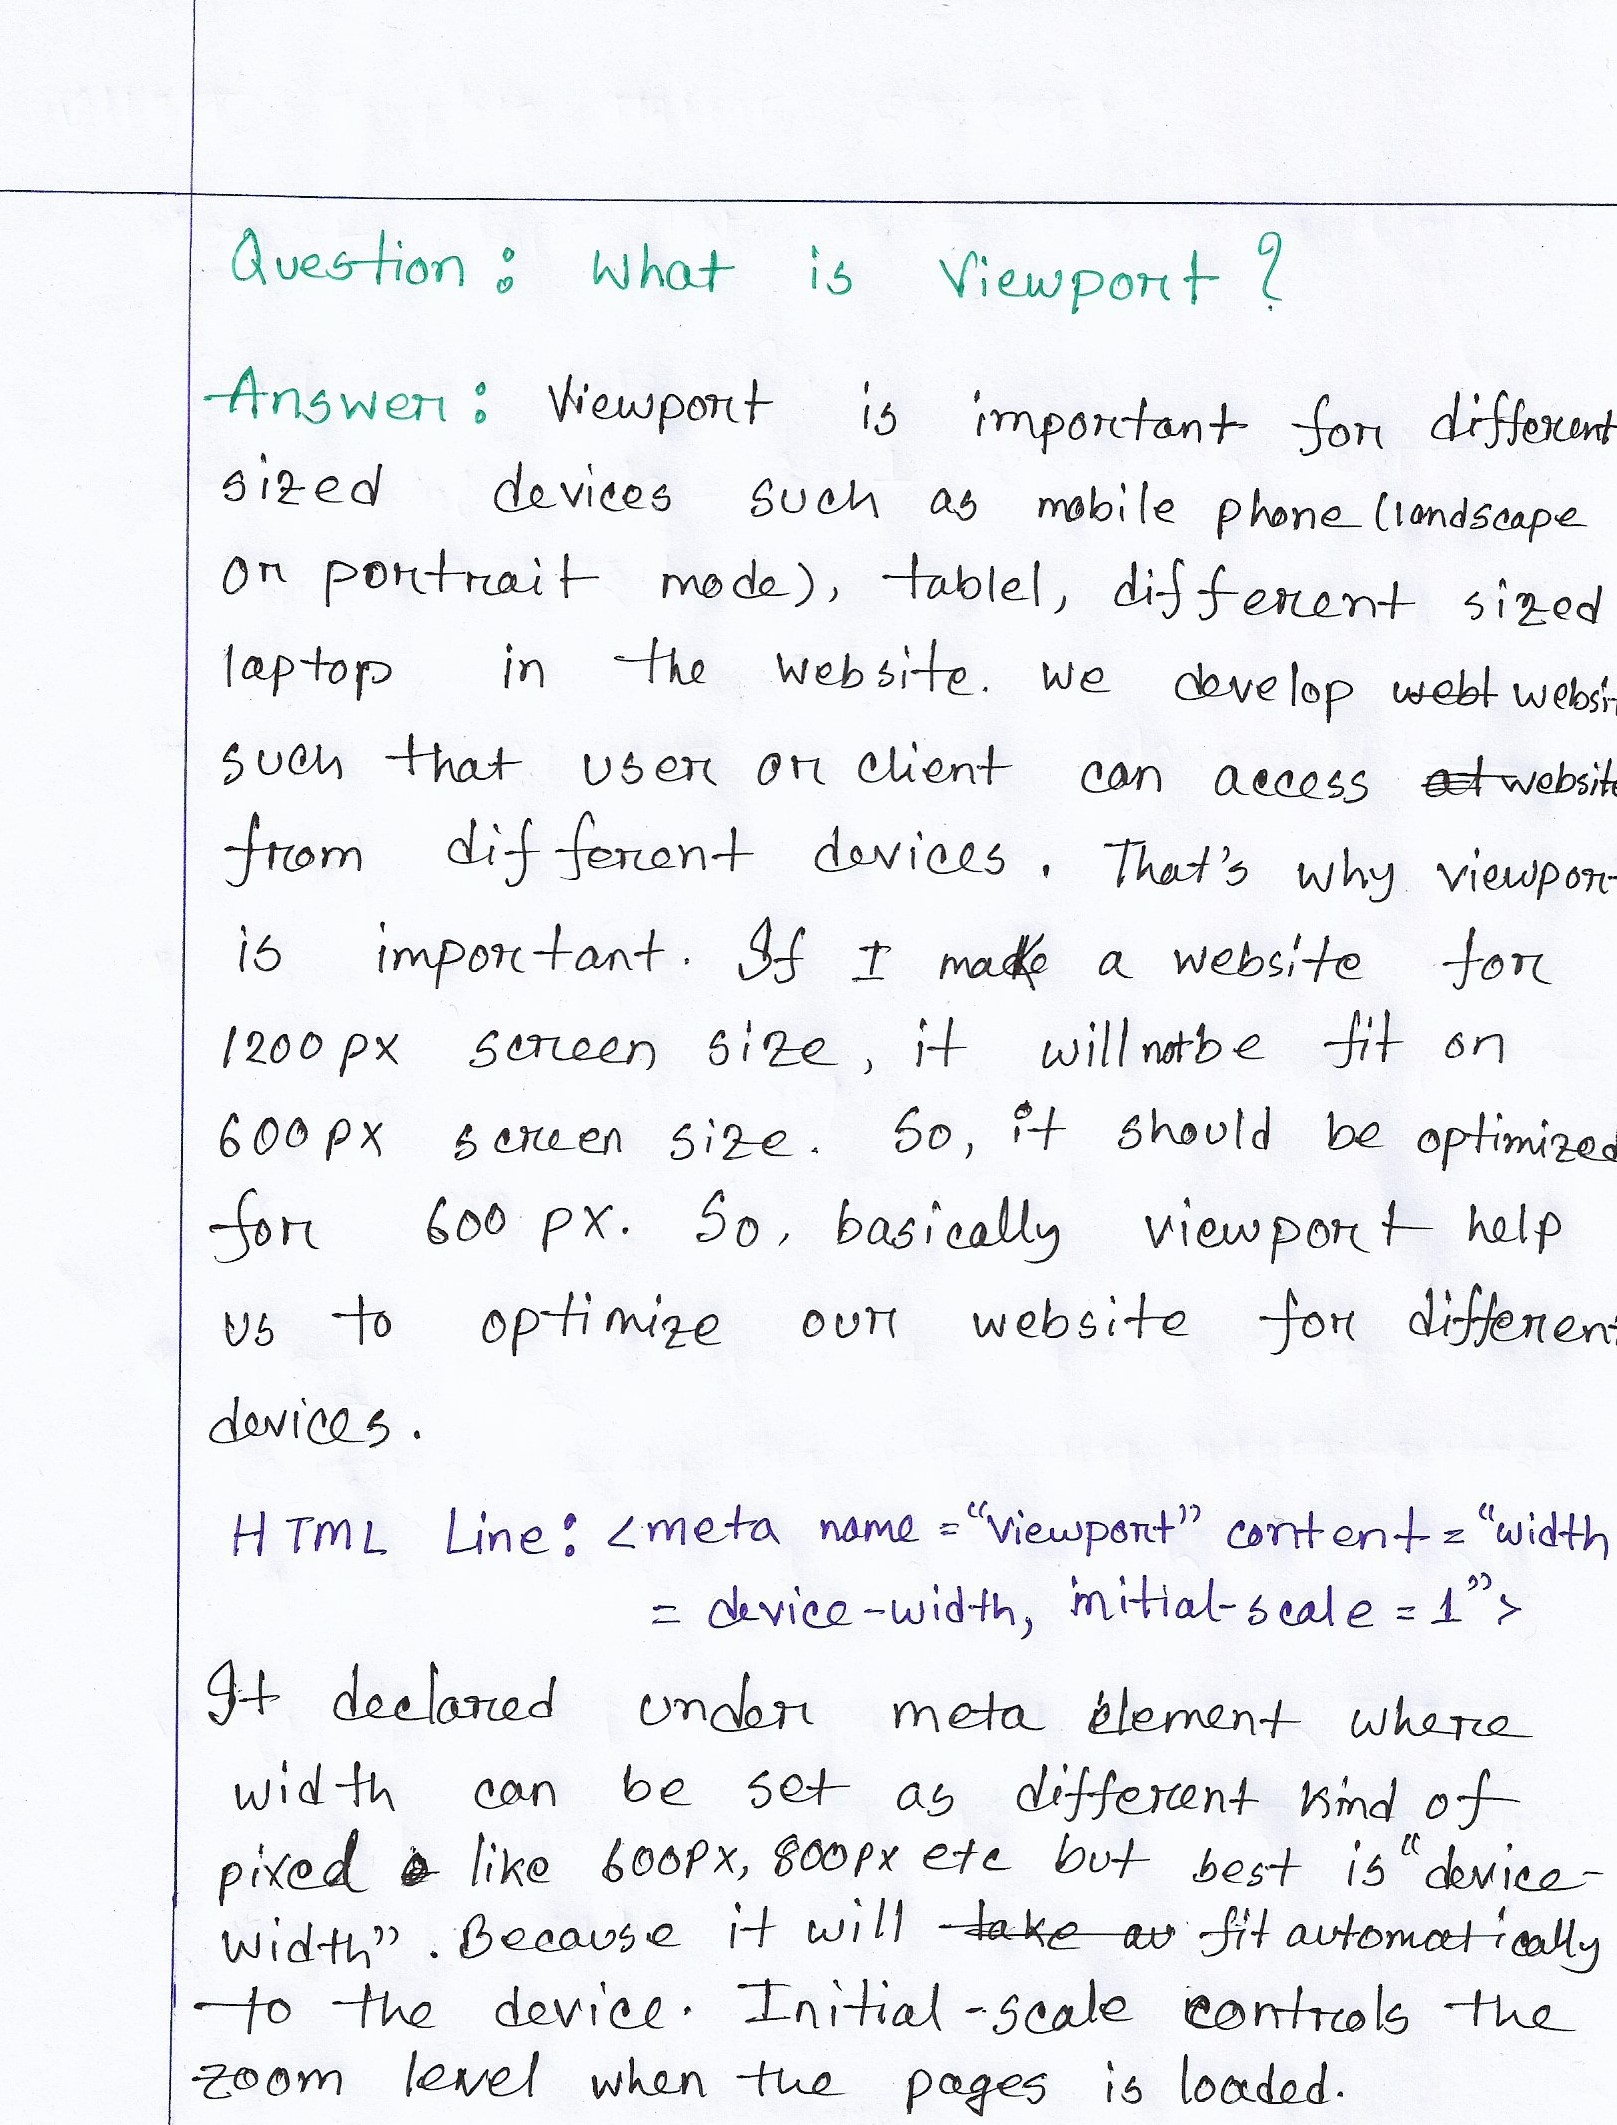 Question: What is Viewport?
Answer: Viewport is important for different
sized devices such as mobile phone (landscape
or portrait mode), tablel, different sized
laptop in the website. We develop webt websi
such that user or client can access at website
from different devices. That's why viewpor
is important. If I make a website for
1200px screen size, it will not be fit on
600px screen size. So, it should be optimized
for 600 px. So, basically viewport help
us to optimize our website for different
devices.
HTML Line: <meta name = "Viewport" content = "width
= device-width, initial-scale = 1">
It declared under meta element where
width can be set as different kind of
pixed like 600px, 800px etc but best is "device-
width". Because it will take au fit automatically
to the device. Initial-scale controls the
zoom level when the pages is loaded.